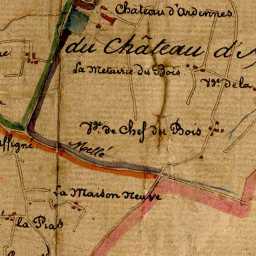 Château d'Ardennes
du Château d'
La Metairie du Bois
V.ge de la
V.ge de Chef du Bois
Mellé
La Maison Neuve
la Plat